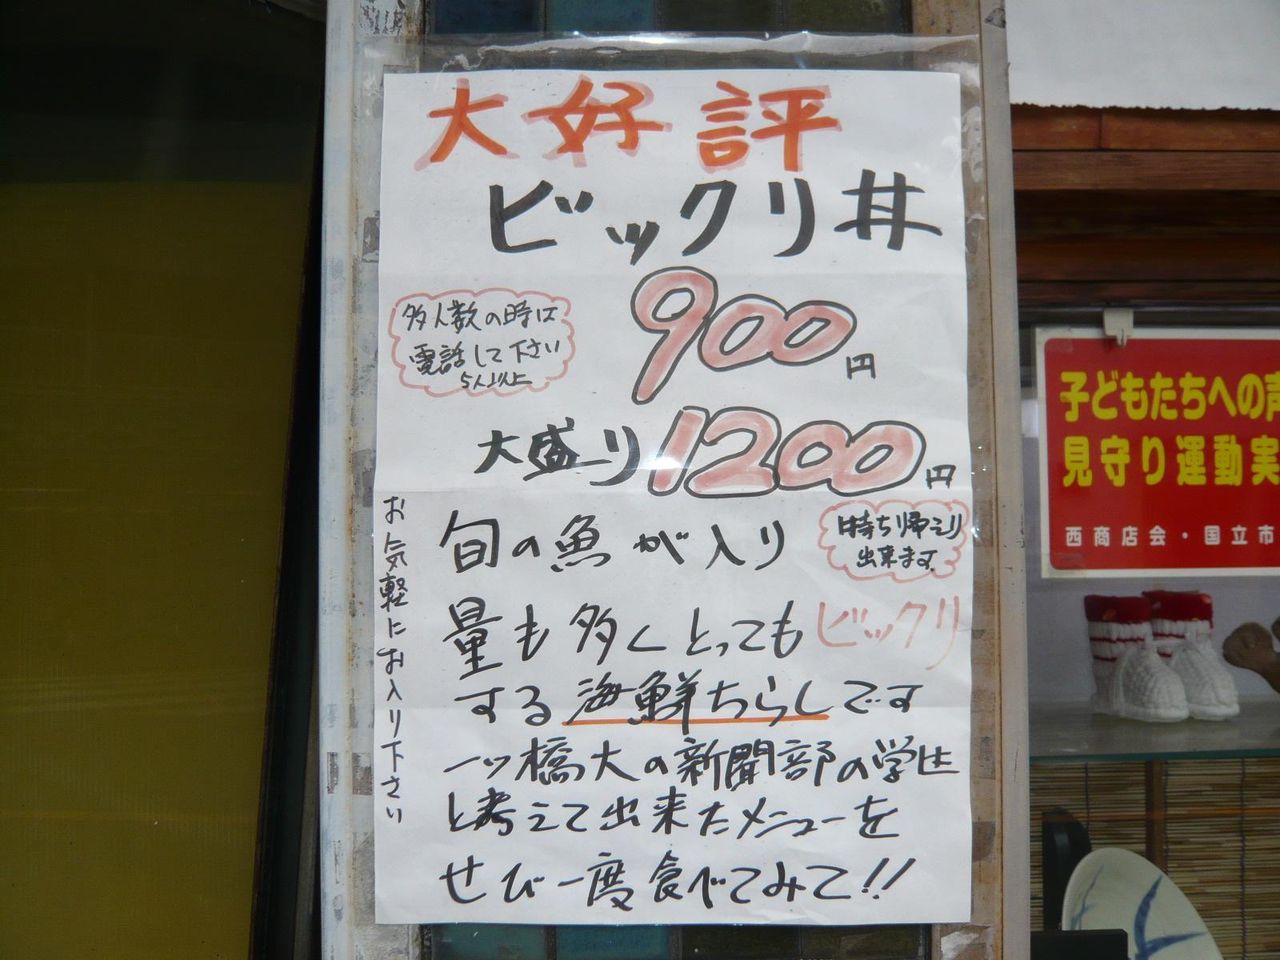 大好評
ビックリ丼
多人数の時は
電話して下さい
5人以上
900円
大盛り1200円
旬の魚が入り
持ち帰えり
出来ます
量も多くとってもビックリ
する海鮮ちらしです
一ッ橋大の新聞部の学生
と考えて出来たメニューを
せび一度食べてみて!!
お気軽にお入り下さい
子どもたちへの声
見守り運動実
西商店会・国立市